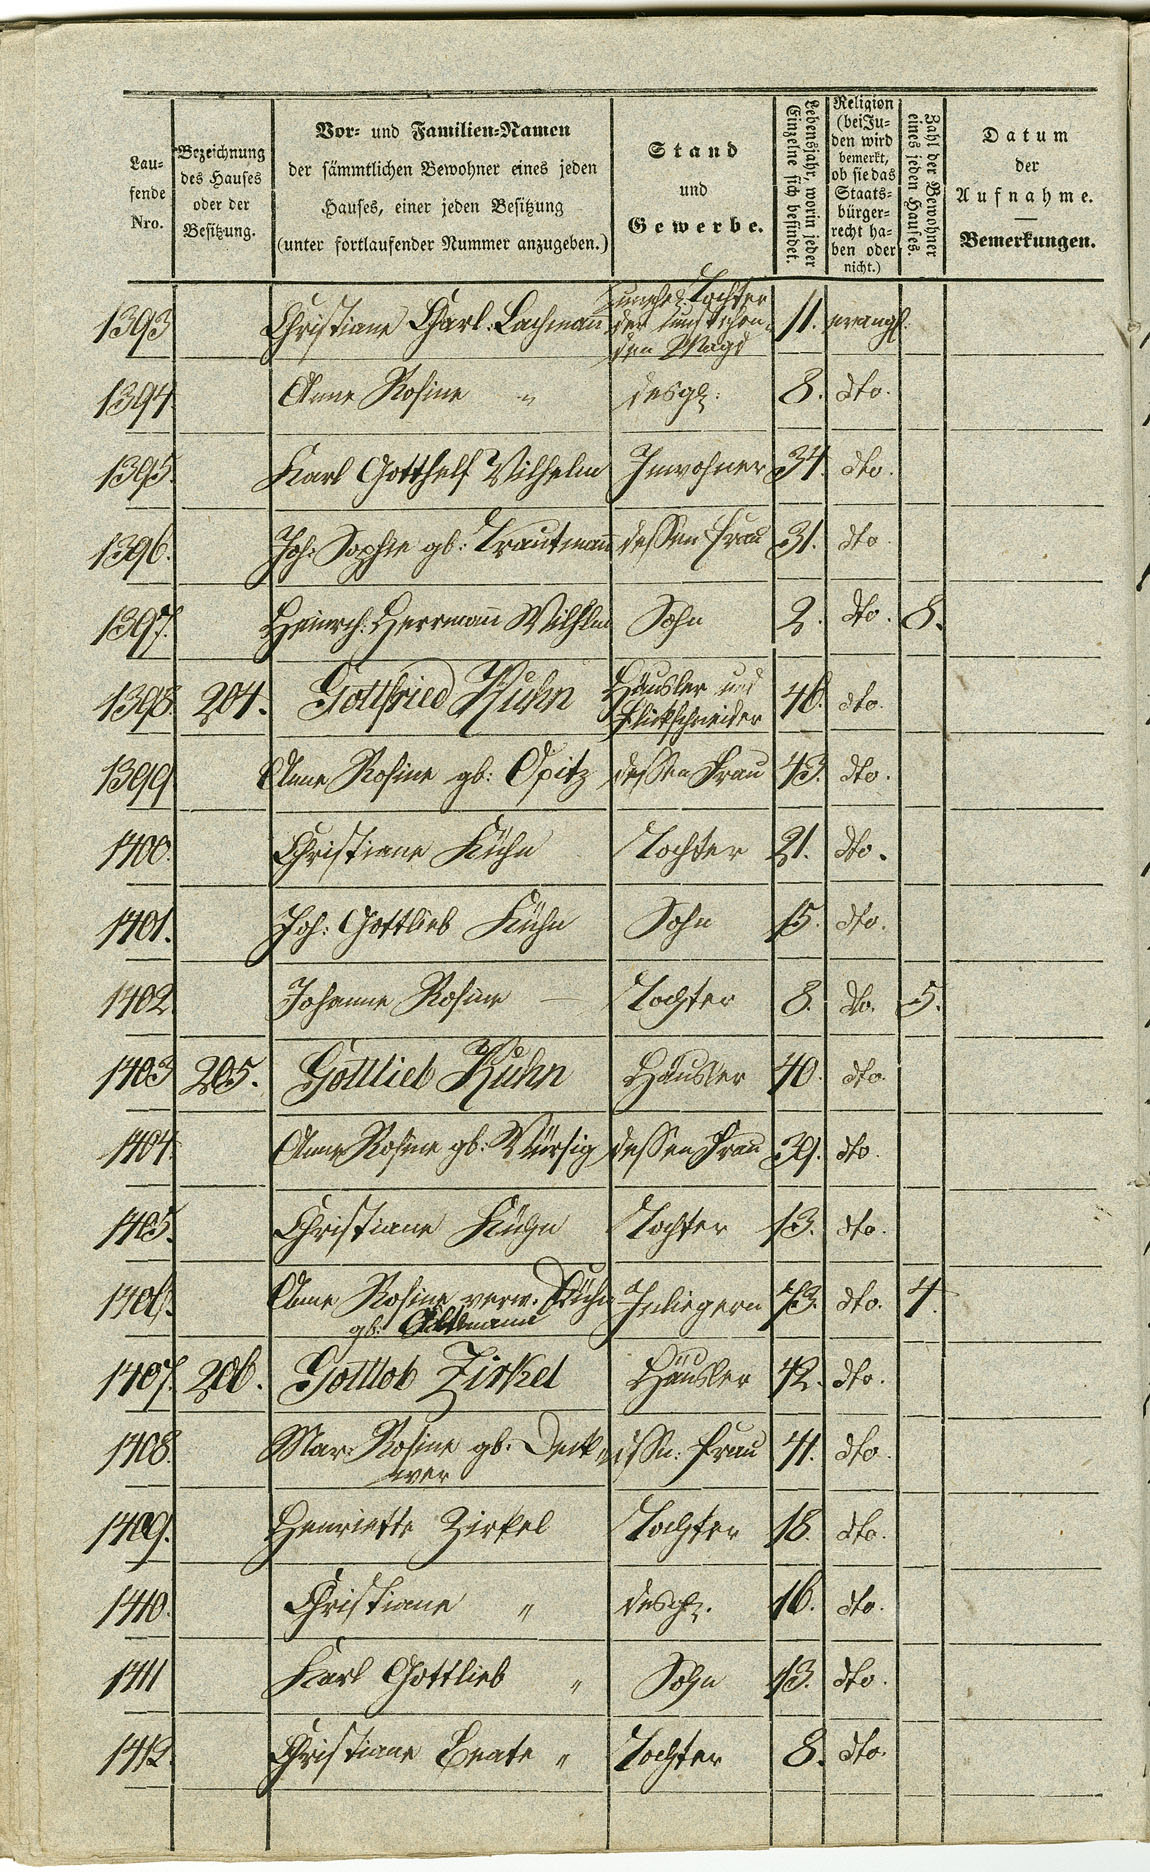 Laufende Nro.
Bezeichnung des Hauses oder der Besitzung.
Vor- und Familien-Namen der sämmtlichen Bewohner eines jeden Hauses, einer jeden Besitzung (unter fortlaufender Nummer anzugeben.)
Stand und Gewerbe.
Lebensjahr, worin jeder Einzelne sich befindet.
Religion (bei Juden wird bemerkt, ob sie das Staatsbürgerrecht haben oder nicht.)
Zahl der Bewohner eines jeden Hauses.
Datum der Aufnahme.
Bemerkungen.
1393 Christiane Charl. Lachmann unehel. Tochter der Magd 11. evangl.
1394. Anne Rosine " desgl: 8. dto.
1395. Karl Gotthelf Wilhelm Inwohner 34. dto.
1396. Joh: Sophie gb: Trautmann dessen Frau 31. dto
1397. Heinrch: Herrmann Wilhelm Sohn 2. dto. 8.
1398. 204. Gottfried Kuhn Häusler und Flickschneider 46. dto.
1399 Anne Rosine gb: Opitz dessen Frau 43. dto.
1400. Christiane Kühn Tochter 21. dto.
1401. Joh: Gottlieb Kühn Sohn 15. dto.
1402. Johanne Rosine — Tochter 8. do. 5.
1403 205. Gottlieb Kuhn Häusler 40. dto.
1404. Anne Rosine gb: Würsig dessen Frau 39. dto.
1405. Christiane Kühn Tochter 13. dto.
1406. Anne Rosine verw. Kühn Inliegern 73. dto. 4.
gb:
1407. 206. Gottlob Zirkel Häusler 42. dto.
1408. Mar: Rosine gb. Frau 41. dto.
1409. Henriette Zirkel Tochter 18. dto.
1410. Christiane " desgl. 16. dto.
1411 Karl Gottlieb " Sohn 13. dto.
1412. Christiane Beate " Tochter 8. dto.